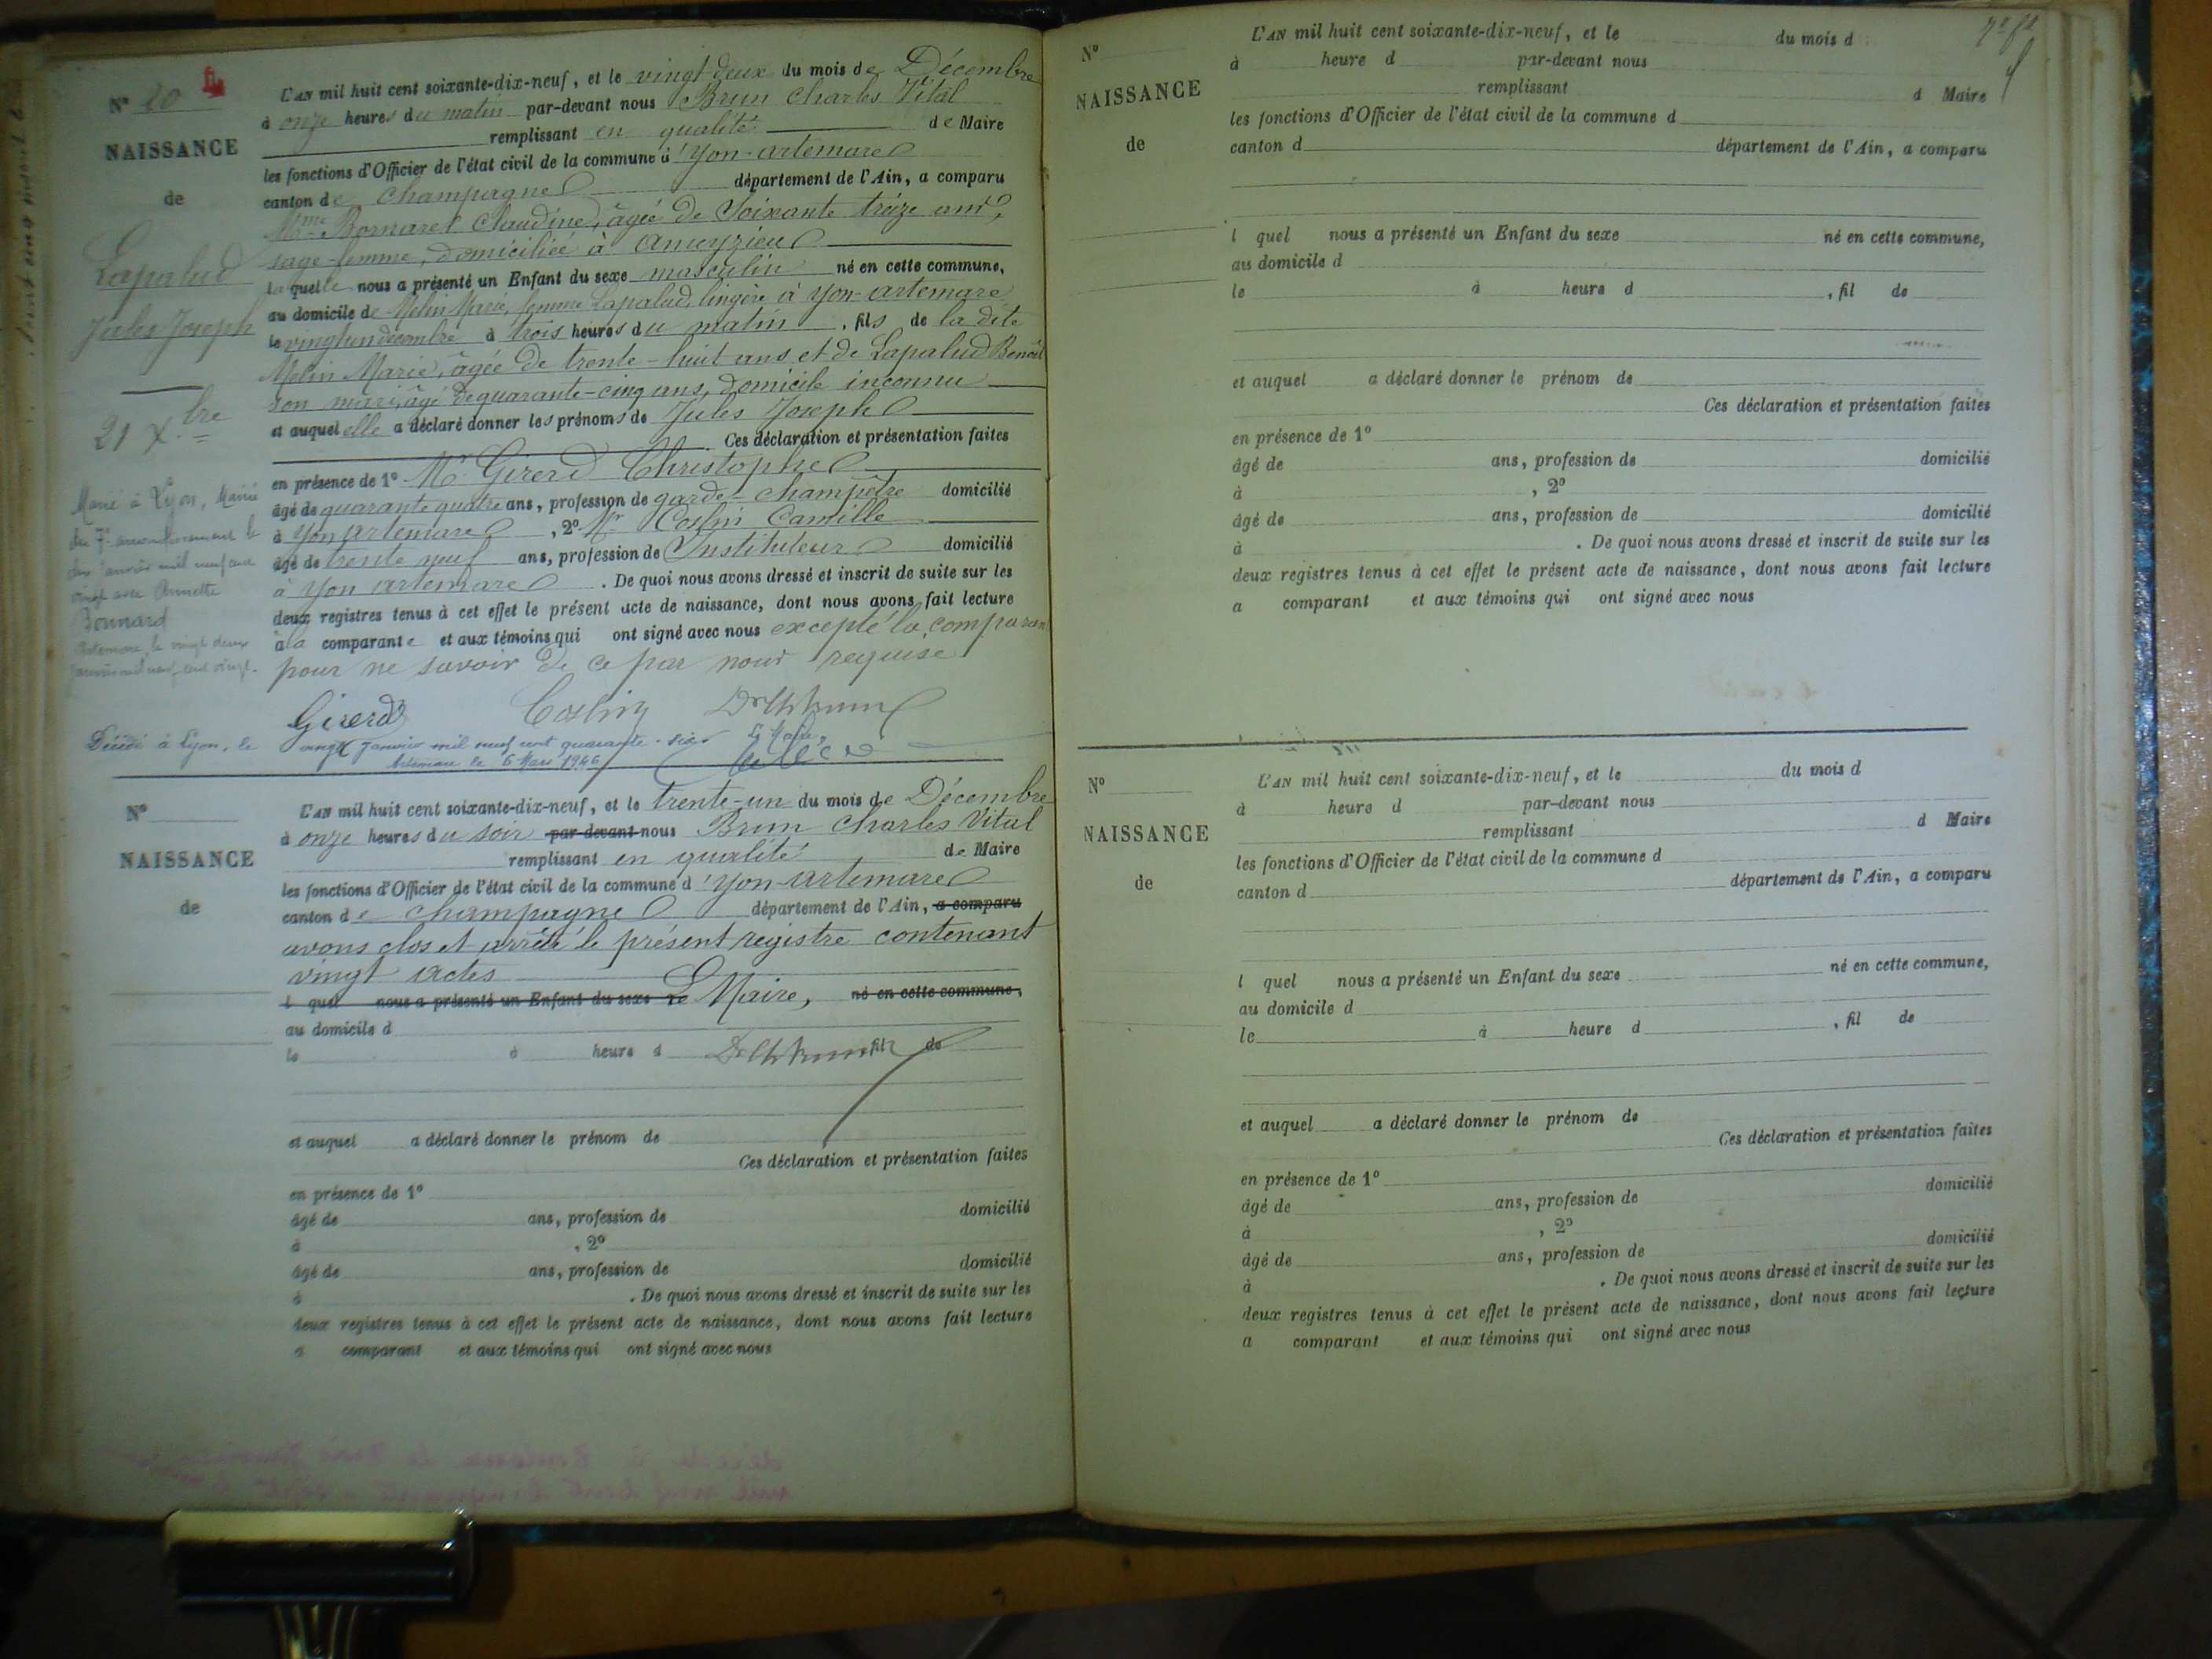 N° 20
NAISSANCE
de
Lapalud
Jules Joseph
21 X.bre
Marié à Lyon, Mairie
du 7e arrondissement le
janvier mil neuf cent
vingt avec Annette
Bonnard
Artemare, le vingt deux
janvier mil neuf cent vingt.
L'AN mil huit cent soixante-dix-neuf, et le vingt deux du mois de Décembre
à onze heures du matin par-devant nous Brun Charles Vital
remplissant en qualité de Maire
les fonctions d'Officier de l'état civil de la commune d'Yon-artemare
canton de Champagne département de l'Ain, a comparu
Mme Bornarel Claudine, âgée de Soixante treize ans,
sage-femme, domiciliée à Ameyzieu
laquelle nous a présenté un Enfant du sexe masculin né en cette commune,
au domicile de Melin Marie, femme Lapalud, lingère à Yon-artemare
le vingt un décembre à trois heures du matin, fils de la dite
Melin Marie, âgée de trente-huit ans et de Lapalud Benoît
son mari, âgé de quarante-cinq ans, domicile inconnu
et auquel elle a déclaré donner les prénoms de Jules Joseph
Ces déclaration et présentation faites
en présence de 1° Mr Girerd Christophe
âgé de quarante quatre ans, profession de garde-champêtre domicilié
à Yon artemare, 2° Mr Camille
âgé de trente neuf ans, profession de Instituteur domicilié
à Yon artemare. De quoi nous avons dressé et inscrit de suite sur les
deux registres tenus à cet effet le présent acte de naissance, dont nous avons fait lecture
à la comparante et aux témoins qui ont signé avec nous excepté la comparante
pour ne savoir de ce par nous requise
Girerd
Décédé à Lyon, le vingt janvier mil neuf cent quarante-six
Artemare le 6 Mars 1946
Le Maire,
N°
NAISSANCE
de
L'AN mil huit cent soixante-dix-neuf, et le trente-un du mois de Décembre
à onze heures du soir par-devant nous Brun Charles Vital
remplissant en qualité de Maire
les fonctions d'Officier de l'état civil de la commune d'Yon-artemare
canton de Champagne département de l'Ain, a comparu
avons clos et arrêté le présent registre contenant
vingt actes
l quel nous a présenté un Enfant du sexe Le Maire, né en cette commune,
au domicile d
le à heure d fil de
et auquel a déclaré donner le prénom de
Ces déclaration et présentation faites
en présence de 1°
âgé de ans, profession de domicilié
à , 2°
âgé de ans, profession de domicilié
à . De quoi nous avons dressé et inscrit de suite sur les
deux registres tenus à cet effet le présent acte de naissance, dont nous avons fait lecture
a comparant et aux témoins qui ont signé avec nous
N°
NAISSANCE
de
L'AN mil huit cent soixante-dix-neuf, et le du mois d
à heure d par-devant nous
remplissant d Maire
les fonctions d'Officier de l'état civil de la commune d
canton d département de l'Ain, a comparu
l quel nous a présenté un Enfant du sexe né en cette commune,
au domicile d
le à heure d , fil de
et auquel a déclaré donner le prénom de
Ces déclaration et présentation faites
en présence de 1°
âgé de ans, profession de domicilié
à , 2°
âgé de ans, profession de domicilié
à . De quoi nous avons dressé et inscrit de suite sur les
deux registres tenus à cet effet le présent acte de naissance, dont nous avons fait lecture
a comparant et aux témoins qui ont signé avec nous
N°
NAISSANCE
de
L'AN mil huit cent soixante-dix-neuf, et le du mois d
à heure d par-devant nous
remplissant d Maire
les fonctions d'Officier de l'état civil de la commune d
canton d département de l'Ain, a comparu
l quel nous a présenté un Enfant du sexe né en cette commune,
au domicile d
le à heure d , fil de
et auquel a déclaré donner le prénom de
Ces déclaration et présentation faites
en présence de 1°
âgé de ans, profession de domicilié
à , 2°
âgé de ans, profession de domicilié
à . De quoi nous avons dressé et inscrit de suite sur les
deux registres tenus à cet effet le présent acte de naissance, dont nous avons fait lecture
a comparant et aux témoins qui ont signé avec nous